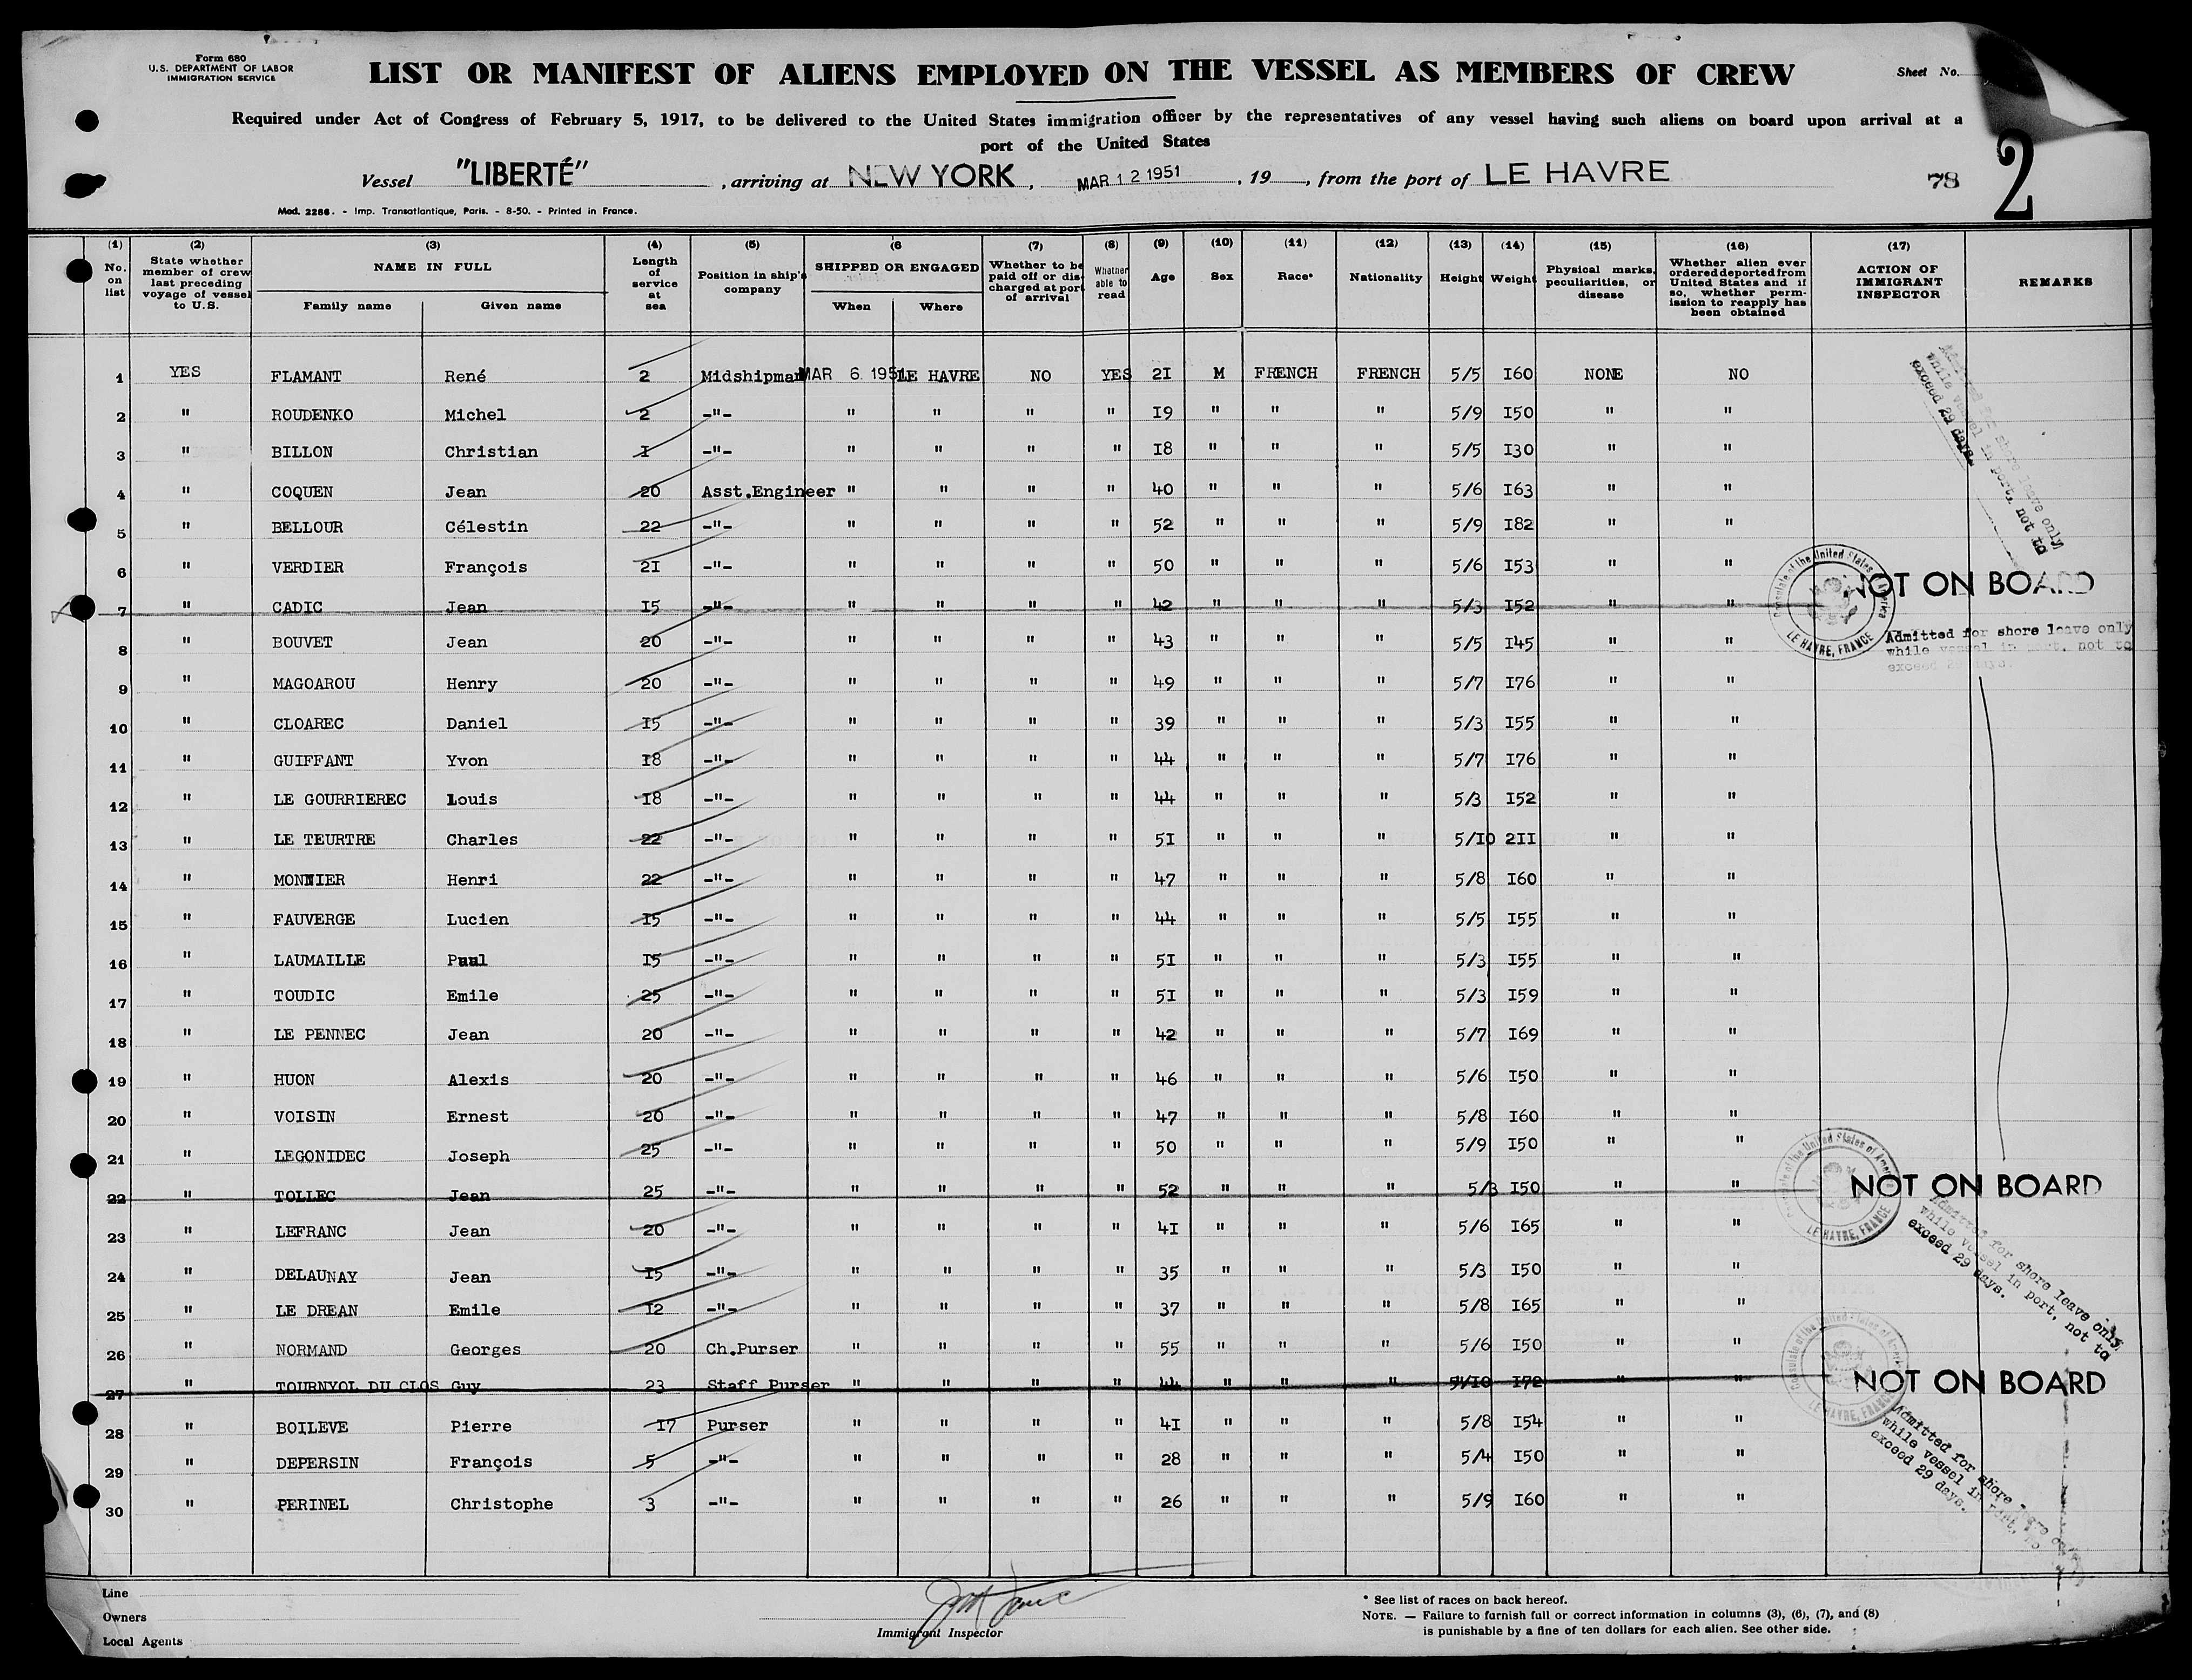 Form 680
U.S. DEPARTMENT OF LABOR
IMMIGRATION SERVICE
LIST OR MANIFEST OF ALIENS EMPLOYED ON THE VESSEL AS MEMBERS OF CREW
Sheet No.
Required under Act of Congress of February 5, 1917, to be delivered to the United States immigration officer by the representatives of any vessel having such aliens on board upon arrival at a
port of the United States
2
Vessel "LIBERTÉ", arriving at NEW YORK, MAR 12 1951, 19, from the port of LE HAVRE 78
Mod. 2286. - Imp. Transatlantique, Paris. - 8-50. - Printed in France.
(1) No. on list
(2) State whether member of crew last preceding voyage of vessel to U.S.
(3) NAME IN FULL Family name Given name
(4) Length of service at sea
(5) Position in ship's company
(6 SHIPPED OR ENGAGED When Where
(7) Whether to be paid off or discharged at port of arrival
(8) Whether able to read
(9) Age
(10) Sex
(11) Race*
(12) Nationality
(13) Height
(14) Weight
(15) Physical marks, peculiarities, or disease
(16) Whether alien ever ordered deported from United States and if so, whether permission to reapply has been obtained
(17) ACTION OF IMMIGRANT INSPECTOR
REMARKS
1 YES FLAMANT René 2 Midshipman MAR 6 1951 LE HAVRE NO YES 2I M FRENCH FRENCH 5/5 I60 NONE NO
2 " ROUDENKO Michel 2 -"- " " " " I9 " " " 5/9 I50 " "
3 " BILLON Christian I -"- " " " " I8 " " " 5/5 I30 " "
4 " COQUEN Jean 20 Asst.Engineer " " " " 40 " " " 5/6 I63 " "
5 " BELLOUR Célestin 22 -"- " " " " 52 " " " 5/9 I82 " "
6 " VERDIER François 2I -"- " " " " 50 " " " 5/6 I53 " "
7 " CADIC Jean I5 -"- " " " " 42 " " " 5/3 I52 " " NOT ON BOARD
8 " BOUVET Jean 20 -"- " " " " 43 " " " 5/5 I45 " "
9 " MAGOAROU Henry 20 -"- " " " " 49 " " " 5/7 I76 " "
10 " CLOAREC Daniel I5 -"- " " " " 39 " " " 5/3 I55 " "
11 " GUIFFANT Yvon I8 -"- " " " " 44 " " " 5/7 I76 " "
12 " LE GOURRIEREC Louis I8 -"- " " " " 44 " " " 5/3 I52 " "
13 " LE TEURTRE Charles 22 -"- " " " " 5I " " " 5/I0 2II " "
14 " MONNIER Henri 22 -"- " " " " 47 " " " 5/8 I60 " "
15 " FAUVERGE Lucien I5 -"- " " " " 44 " " " 5/5 I55 " "
16 " LAUMAILLE Paul I5 -"- " " " " 5I " " " 5/3 I55 " "
17 " TOUDIC Emile 25 -"- " " " " 5I " " " 5/3 I59 " "
18 " LE PENNEC Jean 20 -"- " " " " 42 " " " 5/7 I69 " "
19 " HUON Alexis 20 -"- " " " " 46 " " " 5/6 I50 " "
20 " VOISIN Ernest 20 -"- " " " " 47 " " " 5/8 I60 " "
21 " LEGONIDEC Joseph 25 -"- " " " " 50 " " " 5/9 I50 " "
22 " TOLLEC Jean 25 -"- " " " " 52 " " " 5/3 I50 " " NOT ON BOARD
23 " LEFRANC Jean 20 -"- " " " " 4I " " " 5/6 I65 " "
24 " DELAUNAY Jean I5 -"- " " " " 35 " " " 5/3 I50 " "
25 " LE DREAN Emile I2 -"- " " " " 37 " " " 5/8 I65 " "
26 " NORMAND Georges 20 Ch.Purser " " " " 55 " " " 5/6 I50 " "
27 " TOURNYOL DU CLOS Guy 23 Staff Purser " " " " 44 " " " 5/I0 I72 " " NOT ON BOARD
28 " BOILEVE Pierre I7 Purser " " " " 4I " " " 5/8 I54 " "
29 " DEPERSIN François 5 -"- " " " " 28 " " " 5/4 I50 " "
30 " PERINEL Christophe 3 -"- " " " " 26 " " " 5/9 I60 " "
Admitted for shore leave only
while vessel in port, not to
exceed 29 days.
Consulate of the United States of America
LE HAVRE, FRANCE
Admitted for shore leave only
while vessel in port, not to
exceed 29 days.
Consulate of the United States of America
LE HAVRE, FRANCE
Admitted for shore leave only
while vessel in port, not to
exceed 29 days.
Consulate of the United States of America
LE HAVRE, FRANCE
Admitted for shore leave only
while vessel in port,
exceed 29 days.
Line
Owners
Local Agents
Immigrant Inspector
* See list of races on back hereof.
NOTE. — Failure to furnish full or correct information in columns (3), (6), (7), and (8)
is punishable by a fine of ten dollars for each alien. See other side.